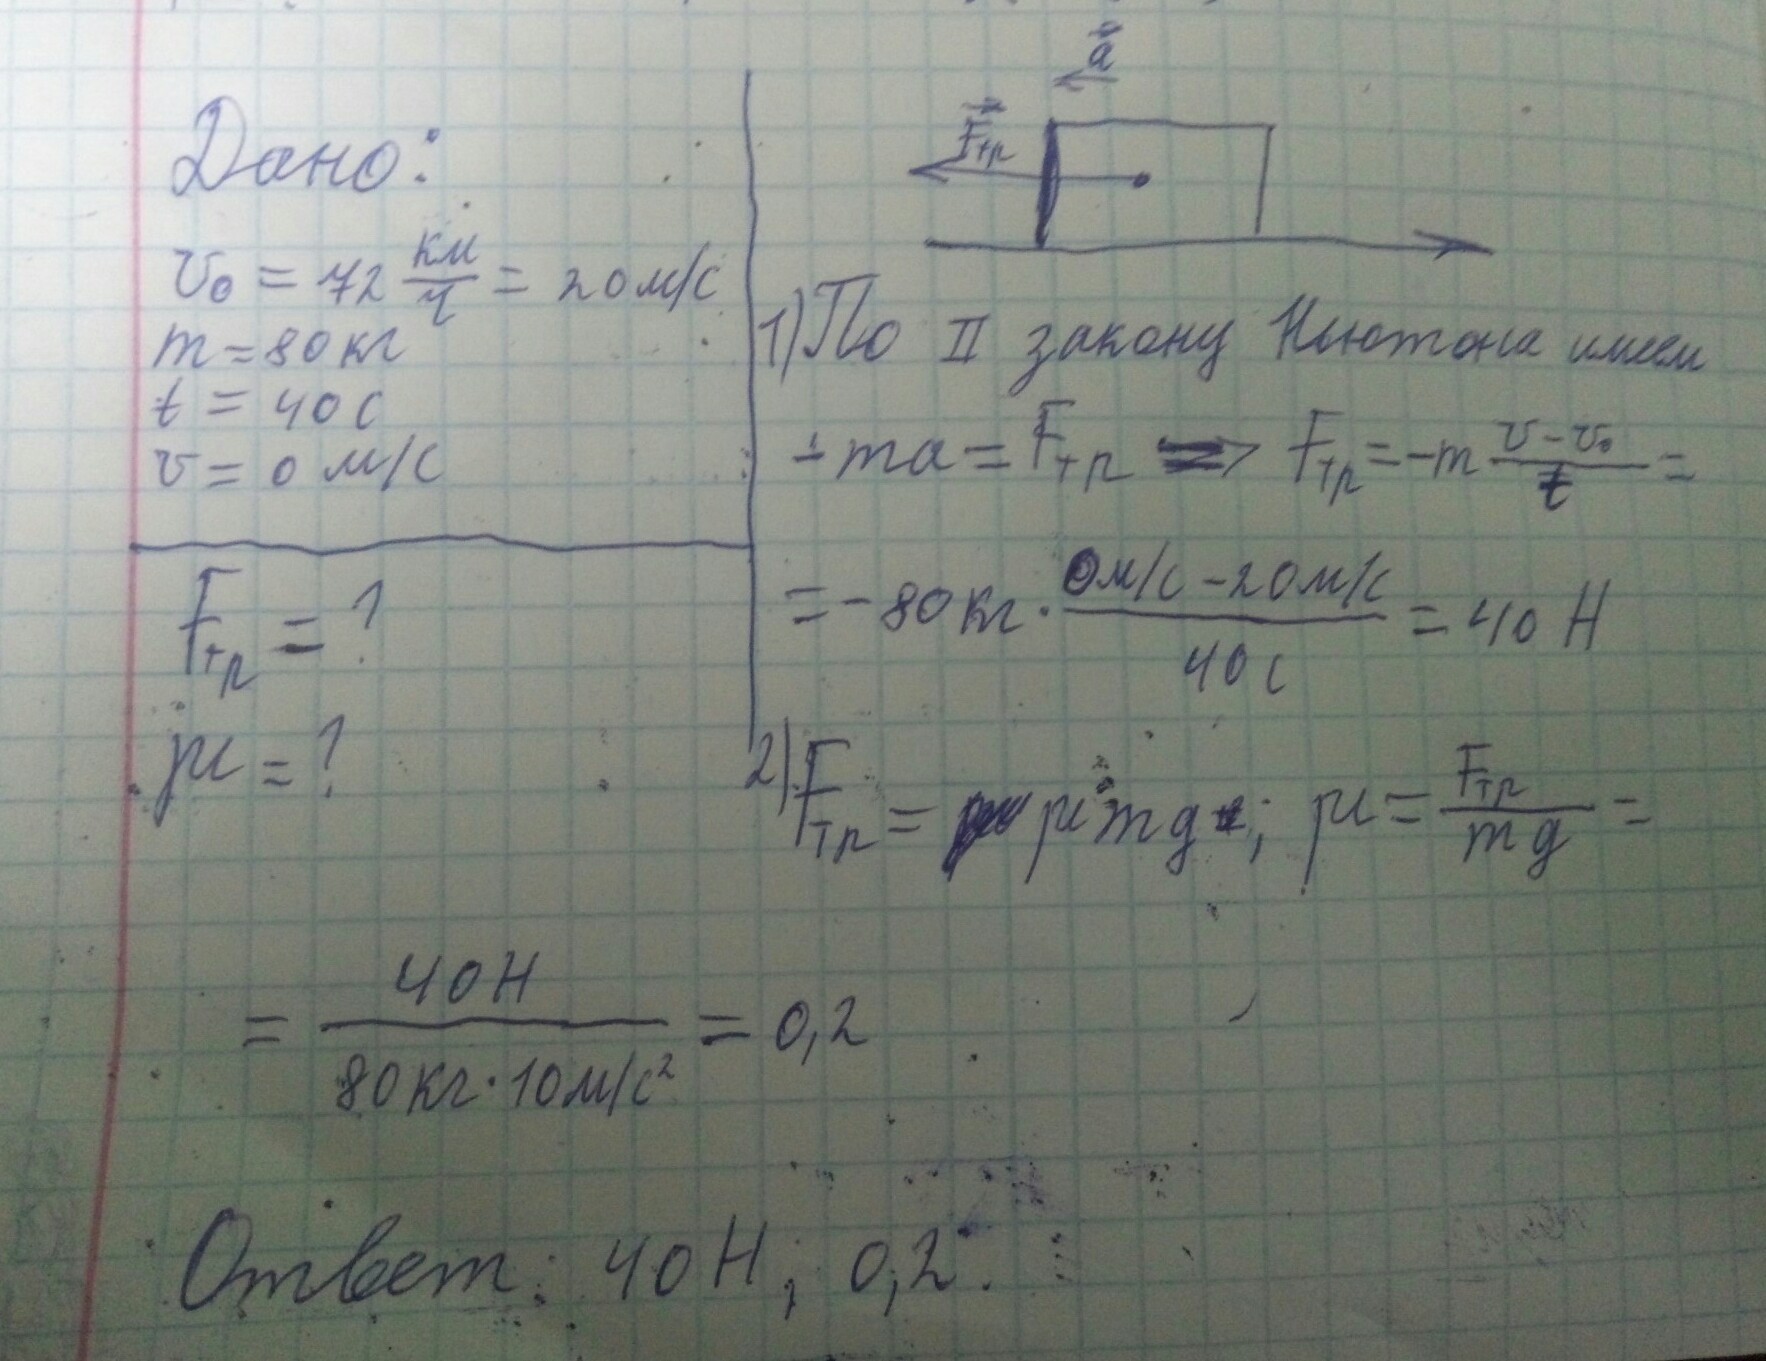 Дано:
v₀ = 72 км/ч = 20 м/с
m = 80 кг
t = 40 с
v = 0 м/с
Fтр = ?
μ = ?
a
Fтр
1) По II закону Ньютона имеем
-ma = Fтр => Fтр = -m (v - v₀)/t =
= -80 кг · (0 м/с - 20 м/с)/40 с = 40 Н
2) Fтр = μmg; μ = Fтр/mg =
= 40 Н/(80 кг · 10 м/с²) = 0,2
Ответ: 40 Н; 0,2.